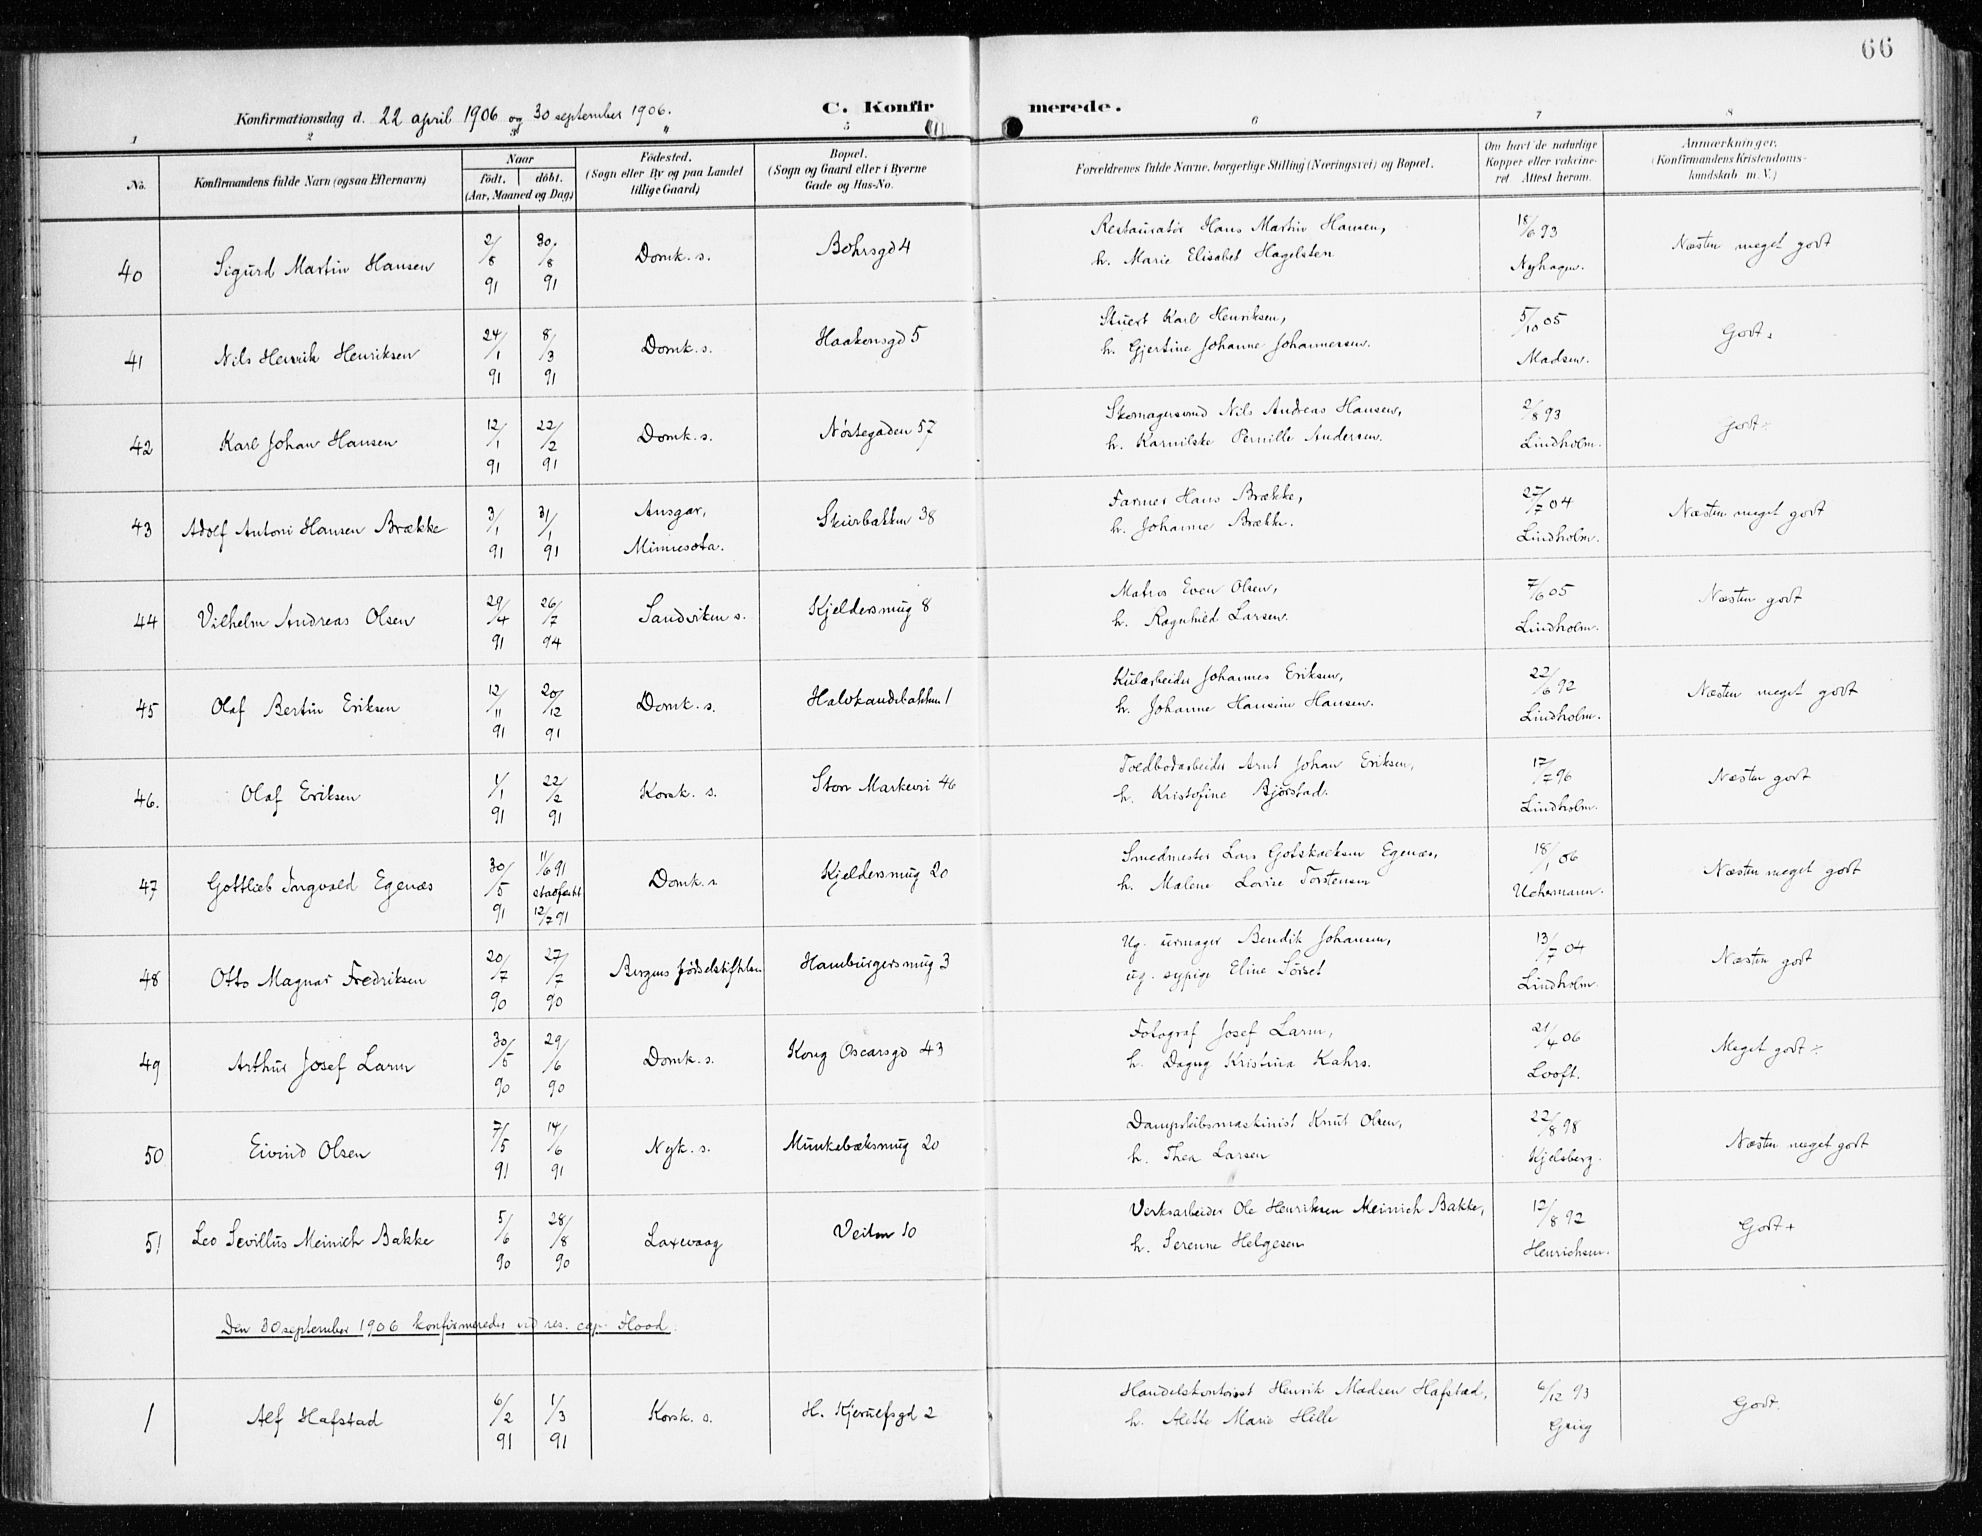 66
Konfirmationsdag d. 22 april 1906 og 30 september 1906.
C. Konfirmerede.
1 2 3 4 5 6 7 8
No.
Konfirmandens fulde Navn (ogsaa Efternavn)
Naar
født. døbt.
(Aar, Maaned og Dag)
Fødested.
(Sogn eller By og paa Landet
tillige Gaard)
Bopæl.
(Sogn og Gaard eller i Byerne
Gade og Hus-No.
Forældrenes fulde Navne, borgerlige Stilling (Næringsvei) og Bopæl.
Om havt de naturlige
Kopper eller vakcine-
ret Attest herom.
Anmærkninger.
(Konfirmandens Kristendoms-
kundskab m. V.)
40 Sigurd Martin Hansen 2/8 91 30/8 91 Domk. s. Bohrsgd 4
Restauratør Hans Martin Hansen,
h. Marie Elisabet Hagelsten
18/6 93
Nyhagen.
Næsten meget godt
41 Nils Henrik Henriksen 24/1 91 8/3 91 Domk. s. Haakonsgd 5
Stuert Karl Henriksen,
h. Gjertine Johanne Johannessen.
5/10 05
Madsen.
Godt.
42 Karl Johan Hansen 12/1 91 22/2 91 Domk. s. Nøstegaden 57
Skomagersvend Nils Andreas Hansen,
h. Karnilske Pernille Andersen.
2/8 93
Lindholm.
Godt ÷
43 Adolf Antoni Hansen Brække 3/1 91 31/1 91 Ansgar,
Minnesota.
Skivebakken 38
Farmer Hans Brække,
h. Johanne Brække.
27/7 04
Lindholm.
Næsten meget godt
44 Vilhelm Andreas Olsen 29/4 91 26/7 94 Sandviken s. Kjeldersmug 8
Matros Even Olsen,
h. Ragnhild Larsen.
7/6 05
Lindholm.
Næsten godt
45 Olaf Bertin Eriksen 12/11 91 20/12 91 Domk. s. Halvkandebakken 1
Kularbeider Johannes Eriksen,
h. Johanne Hansine Hansen.
22/6 92
Lindholm.
Næsten meget godt
46. Olaf Eriksen 1/1 91 22/2 91 Korsk. s. Store Markevei 46
Toldbodarbeider Arnt Johan Eriksen,
h. Kristofine Bjørstad.
17/7 96
Lindholm.
Næsten godt
47 Gottlieb Ingvald Egenæs 30/5 91 11/6 91
stadfæstet
12/7 91
Domk. s Kjeldersmug 20
Smedmester Lars Gotskalksen Egenæs,
h. Malene Lovise Torstensen
18/1 06
Uchermann.
Næsten meget godt
48 Otto Magnar Fredriksen 20/7 90 27/7 90 Bergens fødselsstiftelse Hamburgersmug 3
Ug. urmager Bendik Johansen,
ug. sypige Eline Sørset
13/7 04
Lindholm.
Næsten godt
49 Arthur Josef Larm 30/5 90 29/6 90 Domk. s. Kong Oscarsgd 43
Fotograf Josef Larm,
h. Dagny Kristina Kahrs.
21/4 06
Looft.
Meget godt ÷
50 Eivind Olsen 7/5 91 14/6 91 Nyk. s. Munkebæksmug 20
Dampskibsmaskinist Knut Olsen,
h. Thea Larsen
22/8 98
Kjelsberg.
Næsten meget godt
51 Leo Sevillus Meinich Bakke 5/6 90 28/8 90 Laxevaag Veiten 10
Verksarbeider Ole Henriksen Meinich Bakke,
h. Serenne Helgesen
12/8 92
Henrichsen.
Godt +
Den 30 september 1906 konfirmeredes ved res. cap. Flood.
1 Alf Hafstad 6/2 91 1/3 91 Korsk. s. H. Kjerulfsgd 2
Handelskontorist Henrik Madsen Hafstad,
h. Alette Marie Hille
6/12 93
Grieg
Godt.